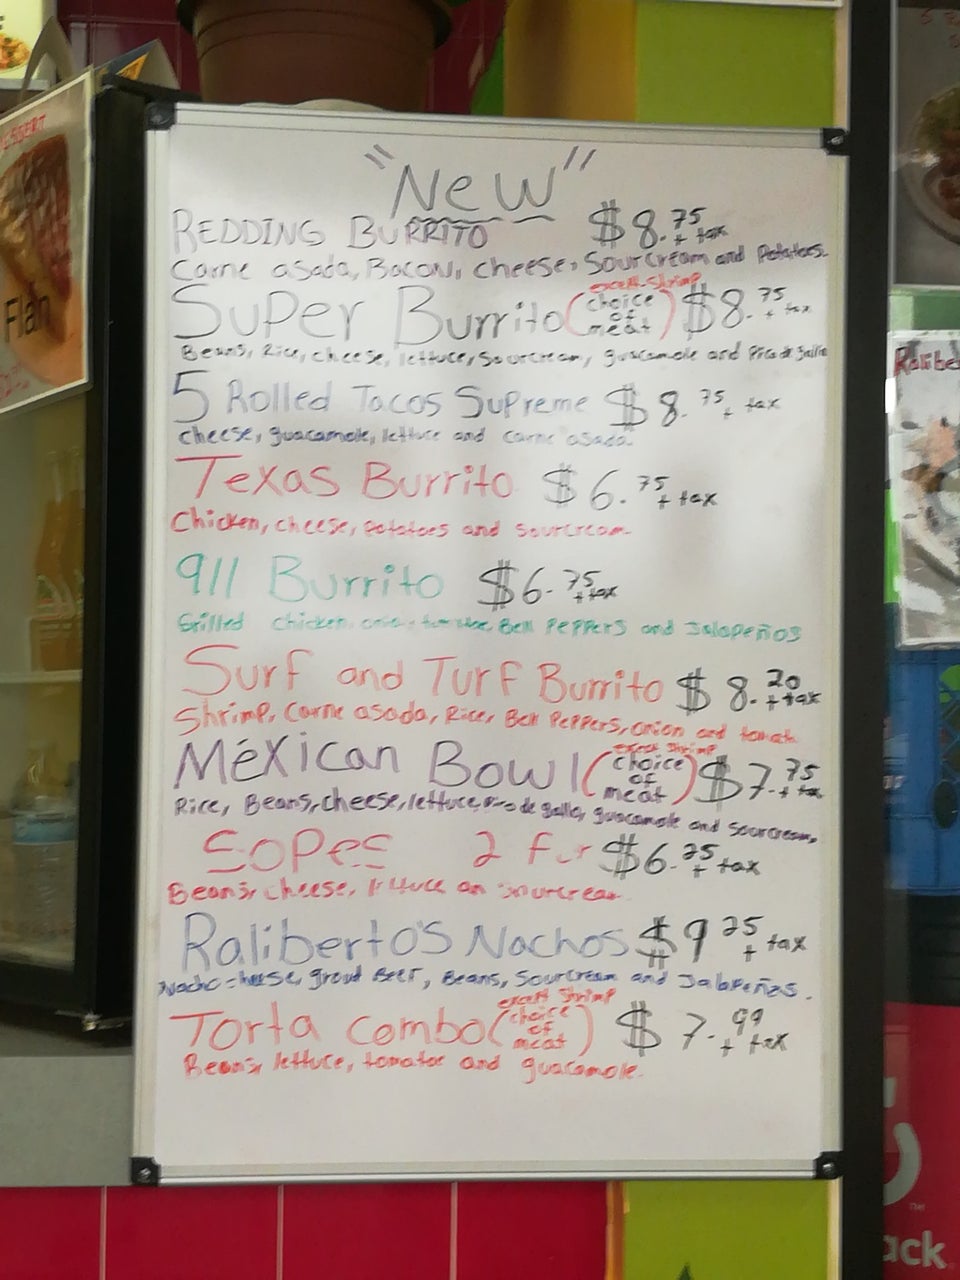 "New"
REDDING BURRITO $8.75 + tax
Carne asada, Bacon, cheese, Sourcream and Potatoes.
Super Burrito (choice of meat) $8.75 + tax
except shrimp
Beans, Rice, cheese, lettuce, sourcream, guacamole and Pico de gallo
5 Rolled Tacos Supreme $8.75 + tax
cheese, guacamole, lettuce and carne asada.
Texas Burrito $6.75 + tax
Chicken, cheese, potatoes and sourcream
911 Burrito $6.75 + tax
Grilled chicken, onion, Bell Peppers and Jalapeños
Surf and Turf Burrito $8.20 + tax
Shrimp, carne asada, Rice, Bell Peppers, onion and
Méxican Bowl (choice of meat) $7.75 + tax
except shrimp
Rice, Beans, cheese, lettuce, pico de gallo, guacamole and sourcream,
Sopes 2 $6. + tax
Beans, cheese, lettuce
Raliberto's Nachos $9 + tax
cheese, groud Beef, Beans, Sourcream and Jalapeñas.
Torta combo (choice of meat) $7.99 + tax
except shrimp
Beans, lettuce, and guacamole.
Flan
ack